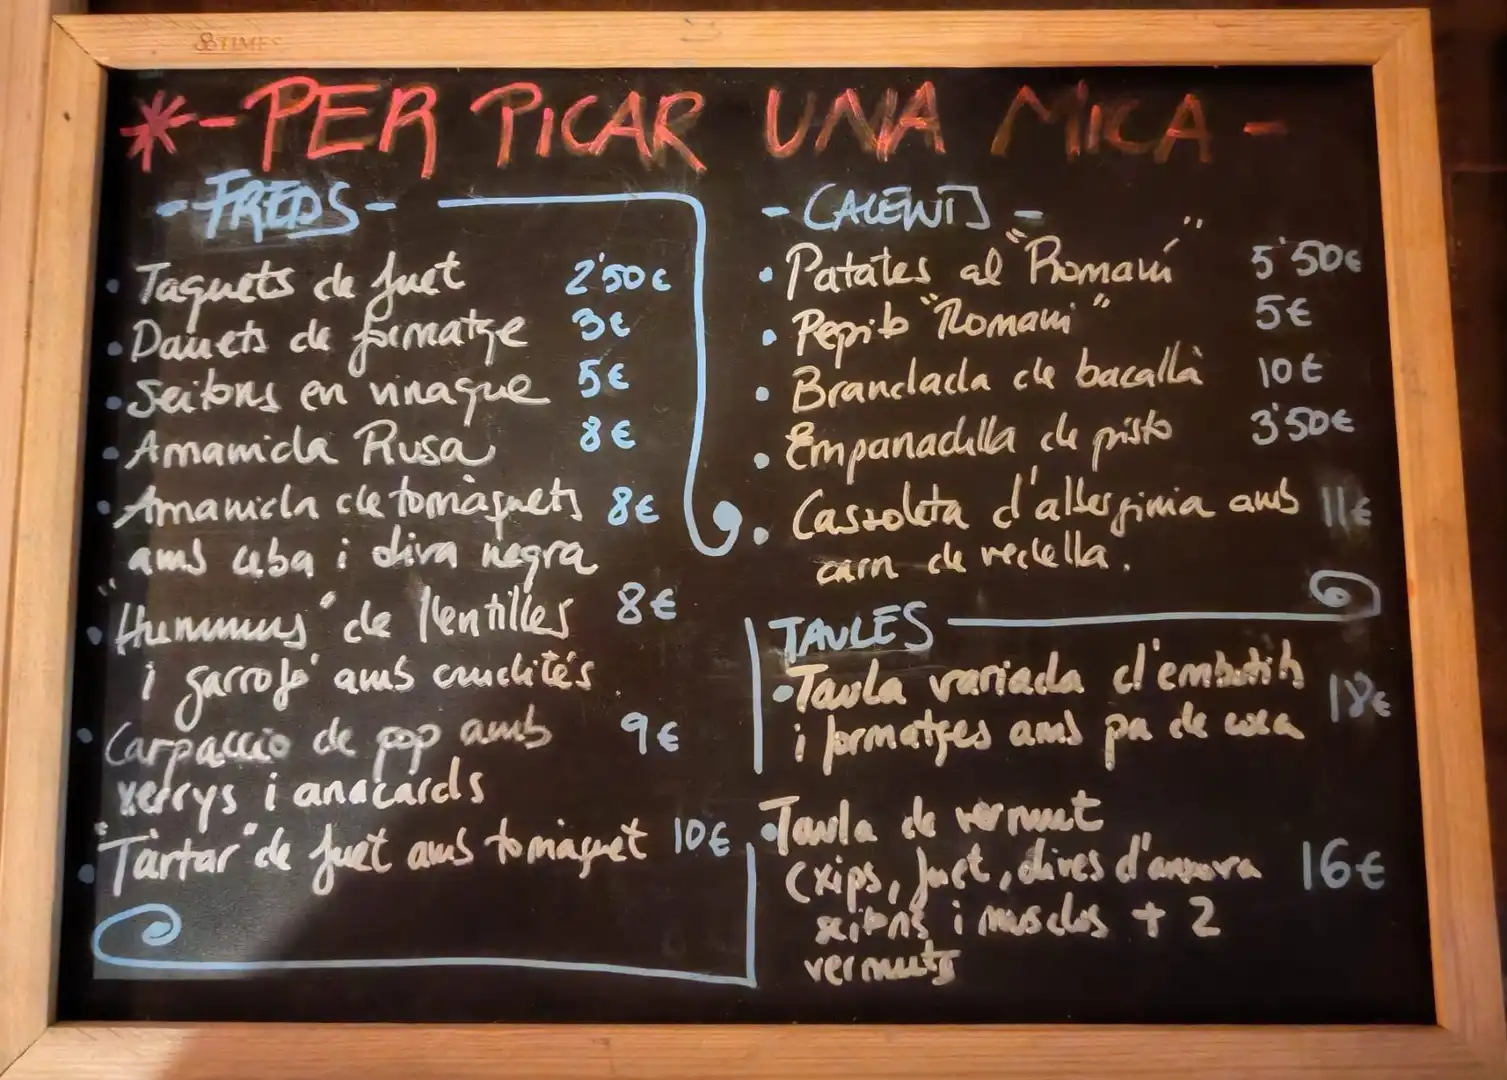 88TIMES
*-PER PICAR UNA MICA-
-FREDS-
• Taquets de fuet 2'50€
• Dauets de formatge 3€
• Seitons en vinagre 5€
• Amanida Rusa 8€
• Amanida de tomàquets 8€
amb ceba i oliva negra
• "Hummus" de llenties 8€
i garrofó amb crudités.
• Carpaccio de pop amb 9€
xerrys i anacards
• "Tàrtar" de fuet amb tomàquet 10€
-CALENTS-
• Patates al "Romaní" 5'50€
• Pepito "Romaní" 5€
• Brandada de bacallà 10€
• Empanadilla de pisto 3'50€
• Cassoleta d'albergínia amb 11€
carn de vedella.
TAULES
• Taula variada d'embotits 18€
i formatges amb pa de coca
• Taula de vermut
(xips, fuet, olives d'anxova 16€
seitons i musclos + 2
vermuts